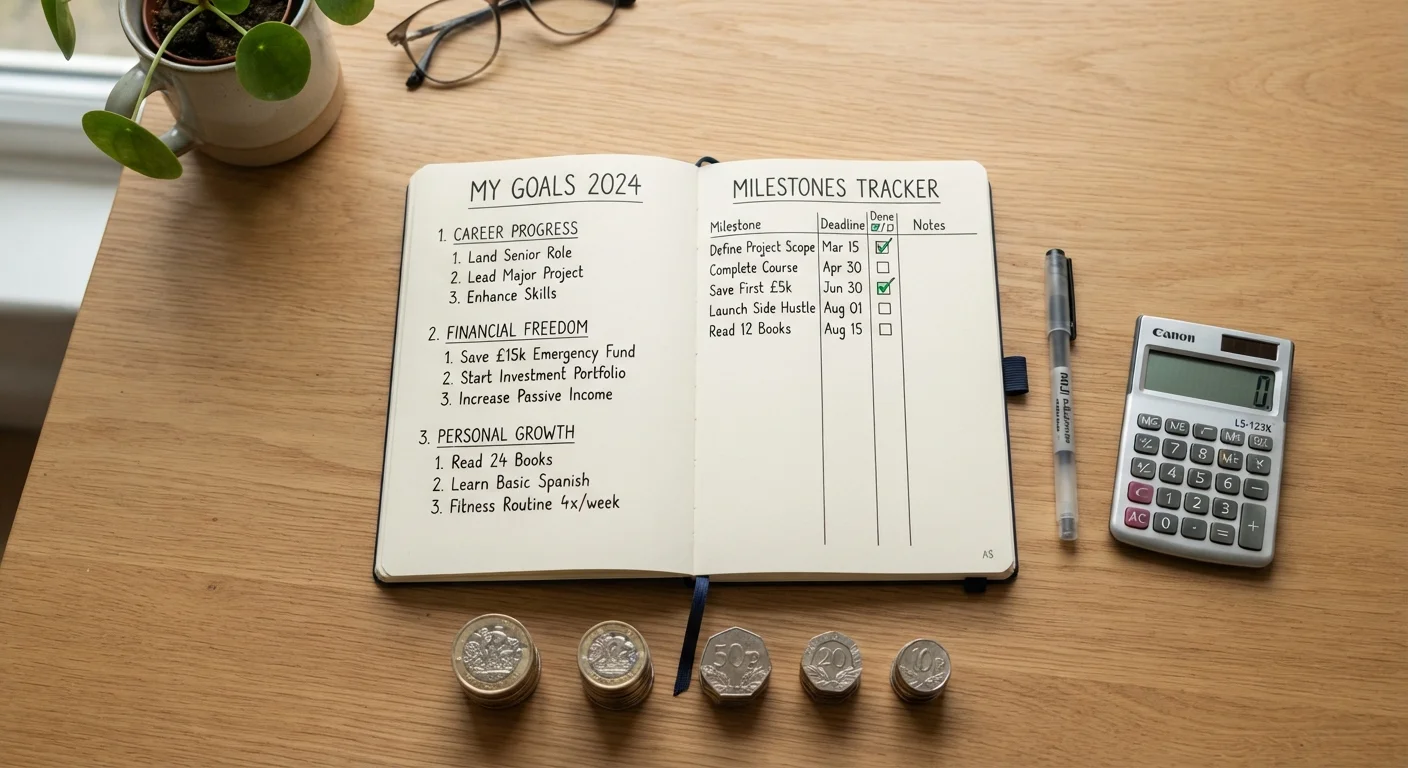 MY GOALS 2024
1. CAREER PROGRESS
1. Land Senior Role
2. Lead Major Project
3. Enhance Skills
2. FINANCIAL FREEDOM
1. Save £15k Emergency Fund
2. Start Investment Portfolio
3. Increase Passive Income
3. PERSONAL GROWTH
1. Read 24 Books
2. Learn Basic Spanish
3. Fitness Routine 4x/week
MILESTONES TRACKER
Milestone Deadline Dene ☑/☐ Notes
Define Project Scope Mar 15 ☑
Complete Course Apr 30 ☐
Save First £5k Jun 30 ☑
Launch Side Hustle Aug 01 ☐
Read 12 Books Aug 15 ☐
AS
MUJI
Canon
0
LS-123X
7 8
4 5 6 −
C 1 2 3
AC 0 · = +
50p
20
10p